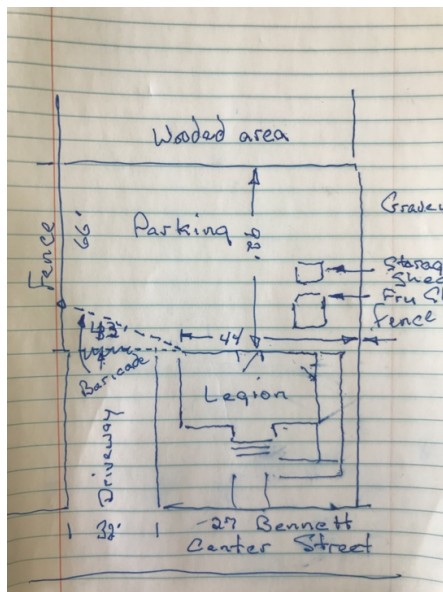 Wooded area
Fence
66'
Parking
Storag
Shed
Fry Sh
Fence
44
Baricade
Legion
Driveway
32'
27 Bennett
Center Street